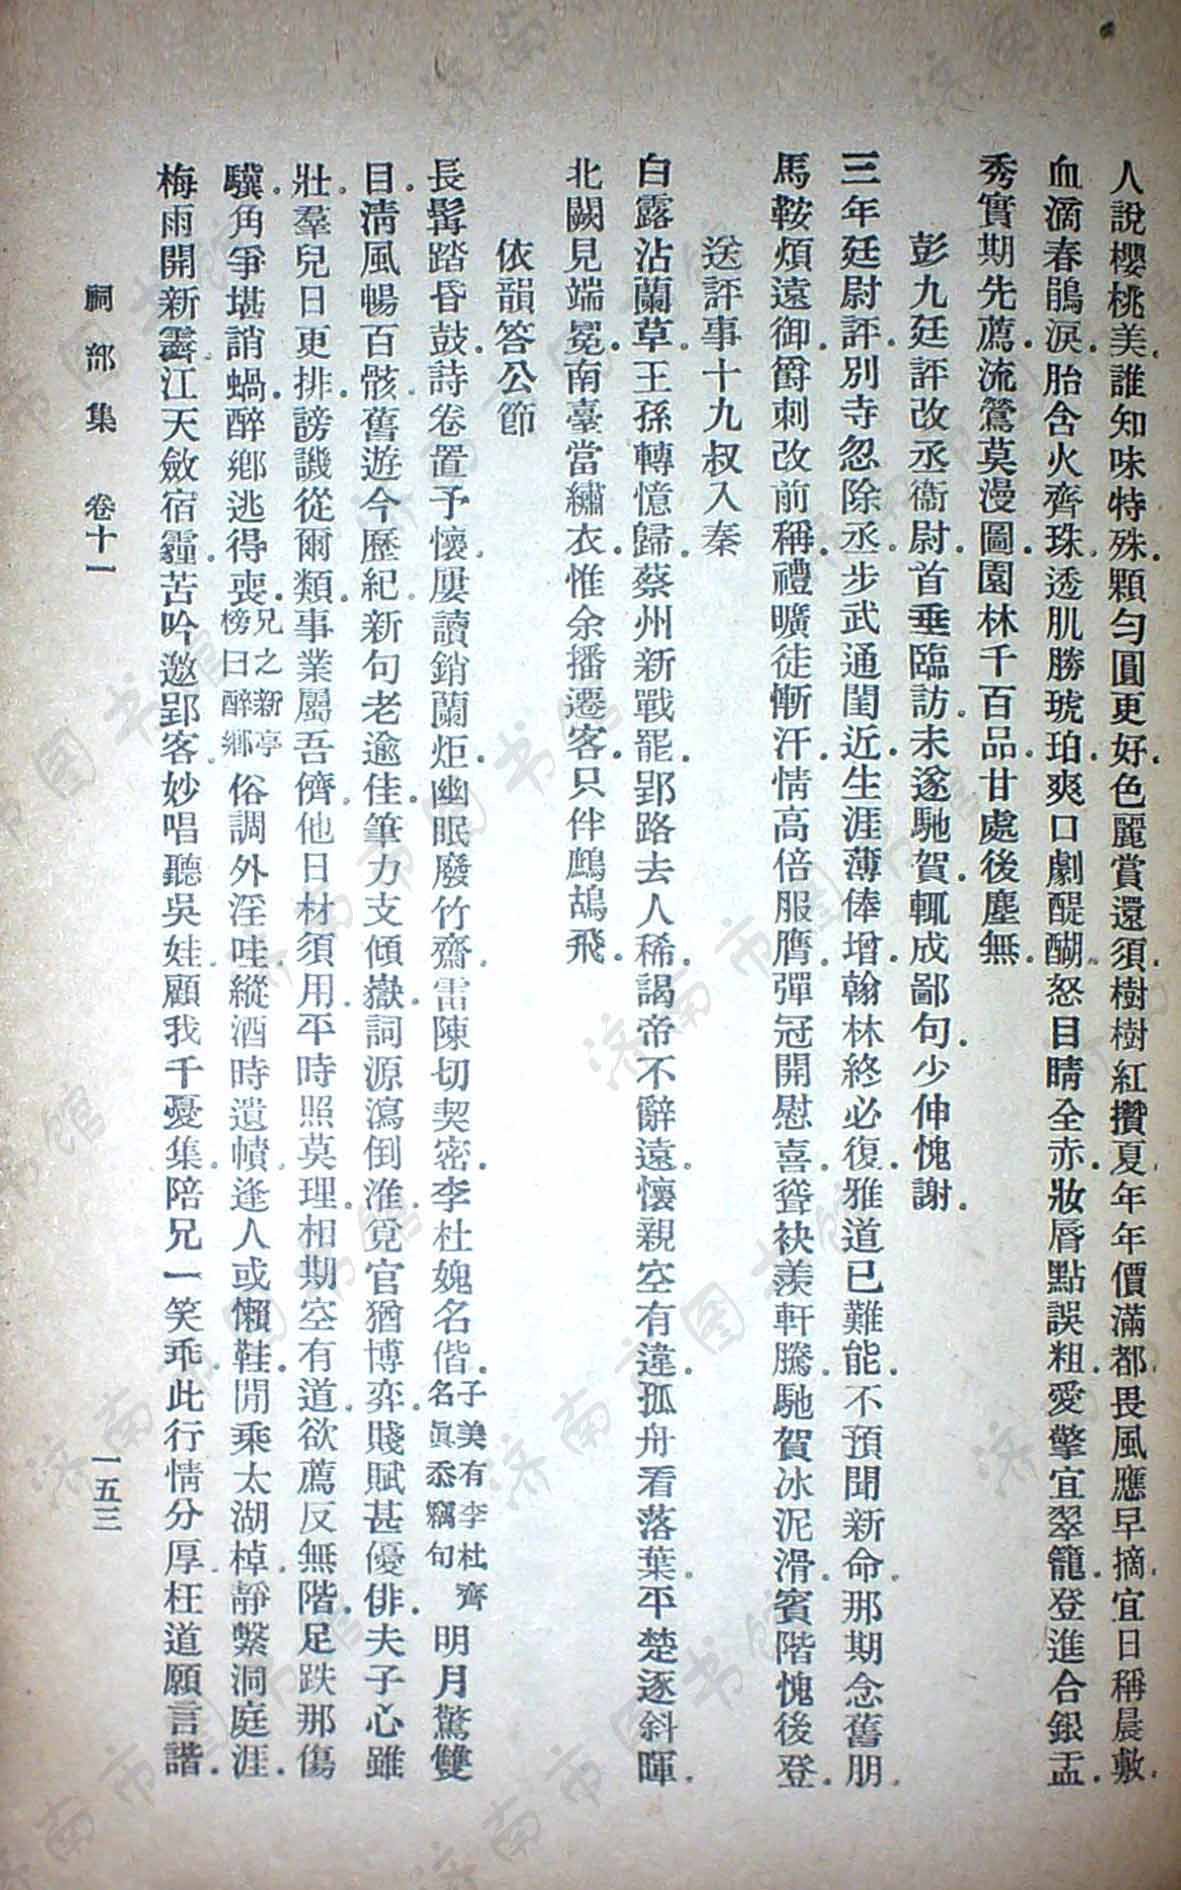 人說櫻桃美。誰知味特殊。顆勻圓更好。色麗賞還須。樹樹紅攢夏。年年價滿都。畏風應早摘。宜日稱晨敷。
血滴春鵑淚。胎含火齊珠。透肌勝琥珀。爽口劇醍醐。怒目睛全赤。妝脣點誤粗。愛擎宜翠籠。登進合銀盂。
秀實期先薦。流鶯莫漫圖。園林千百品。甘處後塵無。
彭九廷評改丞衞尉。首垂臨訪。未遂馳賀。輒成鄙句。少伸愧謝。
三年廷尉評。別寺忽除丞。步武通閨近。生涯薄俸增。翰林終必復。雅道已難能。不預聞新命。那期念舊朋。
馬鞍煩遠御。爵刺改前稱。禮曠徒慚汗。情高倍服膺。彈冠開慰喜。聳袂羨軒騰。馳賀冰泥滑。賓階愧後登。
送評事十九叔入秦
白露沾蘭草。王孫轉憶歸。蔡州新戰罷。郢路去人稀。謁帝不辭遠。懷親空有違。孤舟看落葉。平楚逐斜暉。
北闕見端冕。南臺當繡衣。惟余播遷客。只伴鷓鴣飛。
依韻答公節
長髯踏昏鼓。詩卷置予懷。屢讀銷蘭炬。幽眠廢竹齋。雷陳切契密。李杜媿名偕。子美有李杜齊名眞忝竊句 明月驚雙
目。淸風暢百骸。舊遊今歷紀。新句老逾佳。筆力支傾嶽。詞源瀉倒淮。覓官猶博弈。賤賦甚優俳。夫子心雖
壯。羣兒日更排。謗譏從爾類。事業屬吾儕。他日材須用。平時照莫理。相期空有道。欲薦反無階。足跌那傷
驥。角爭堪誚蝸。醉鄕逃得喪。兄之新亭榜曰醉鄉 俗調外淫哇。縱酒時遺幘。逢人或懶鞋。閒乘太湖棹。靜繫洞庭涯。
梅雨開新霽。江天斂宿霾。苦吟邀郢客。妙唱聽吳娃。顧我千憂集。陪兄一笑乖。此行情分厚。枉道願言諧。
祠部集　卷十一　一五三